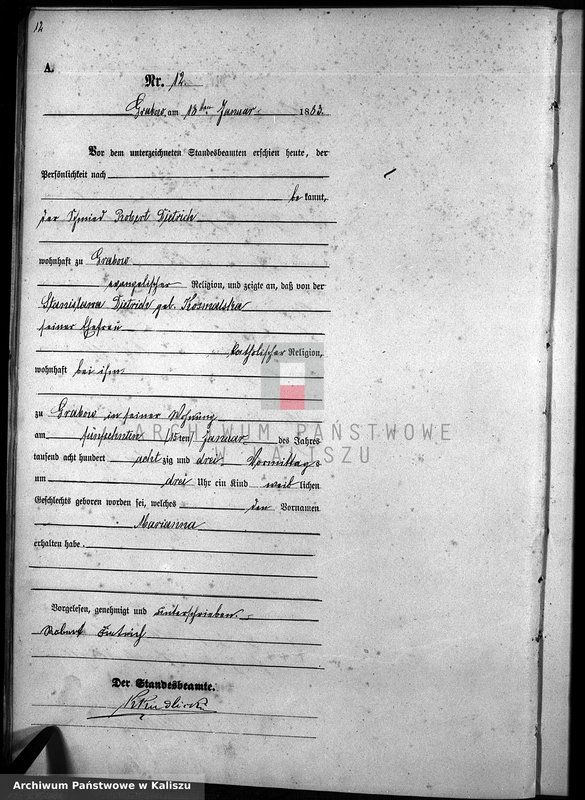 12
A.
Nr. 12.
Grabow, am 18ten Januar 1883.
Vor dem unterzeichneten Standesbeamten erschien heute, der
Persönlichkeit nach
be kannt,
der Schmied Robert Dietrich
wohnhaft zu Grabow
evangelischer Religion, und zeigte an, daß von der
Stanislawa Dietrich geb. Kosmalska
seiner Ehefrau
katholischer Religion,
wohnhaft bei ihm
zu Grabow in seiner Wohnung
am fünfzehnten (15ten) Januar des Jahres
tausend acht hundert acht zig und drei Vormittags
um drei Uhr ein Kind weib lichen
Geschlechts geboren worden sei, welches den Vornamen
Marianna
erhalten habe
Vorgelesen, genehmigt und unterschrieben
Robert Dietrich
Der Standesbeamte.
ARCHIWUM PAŃSTWOWE
W KALISZU
Archiwum Państwowe w Kaliszu